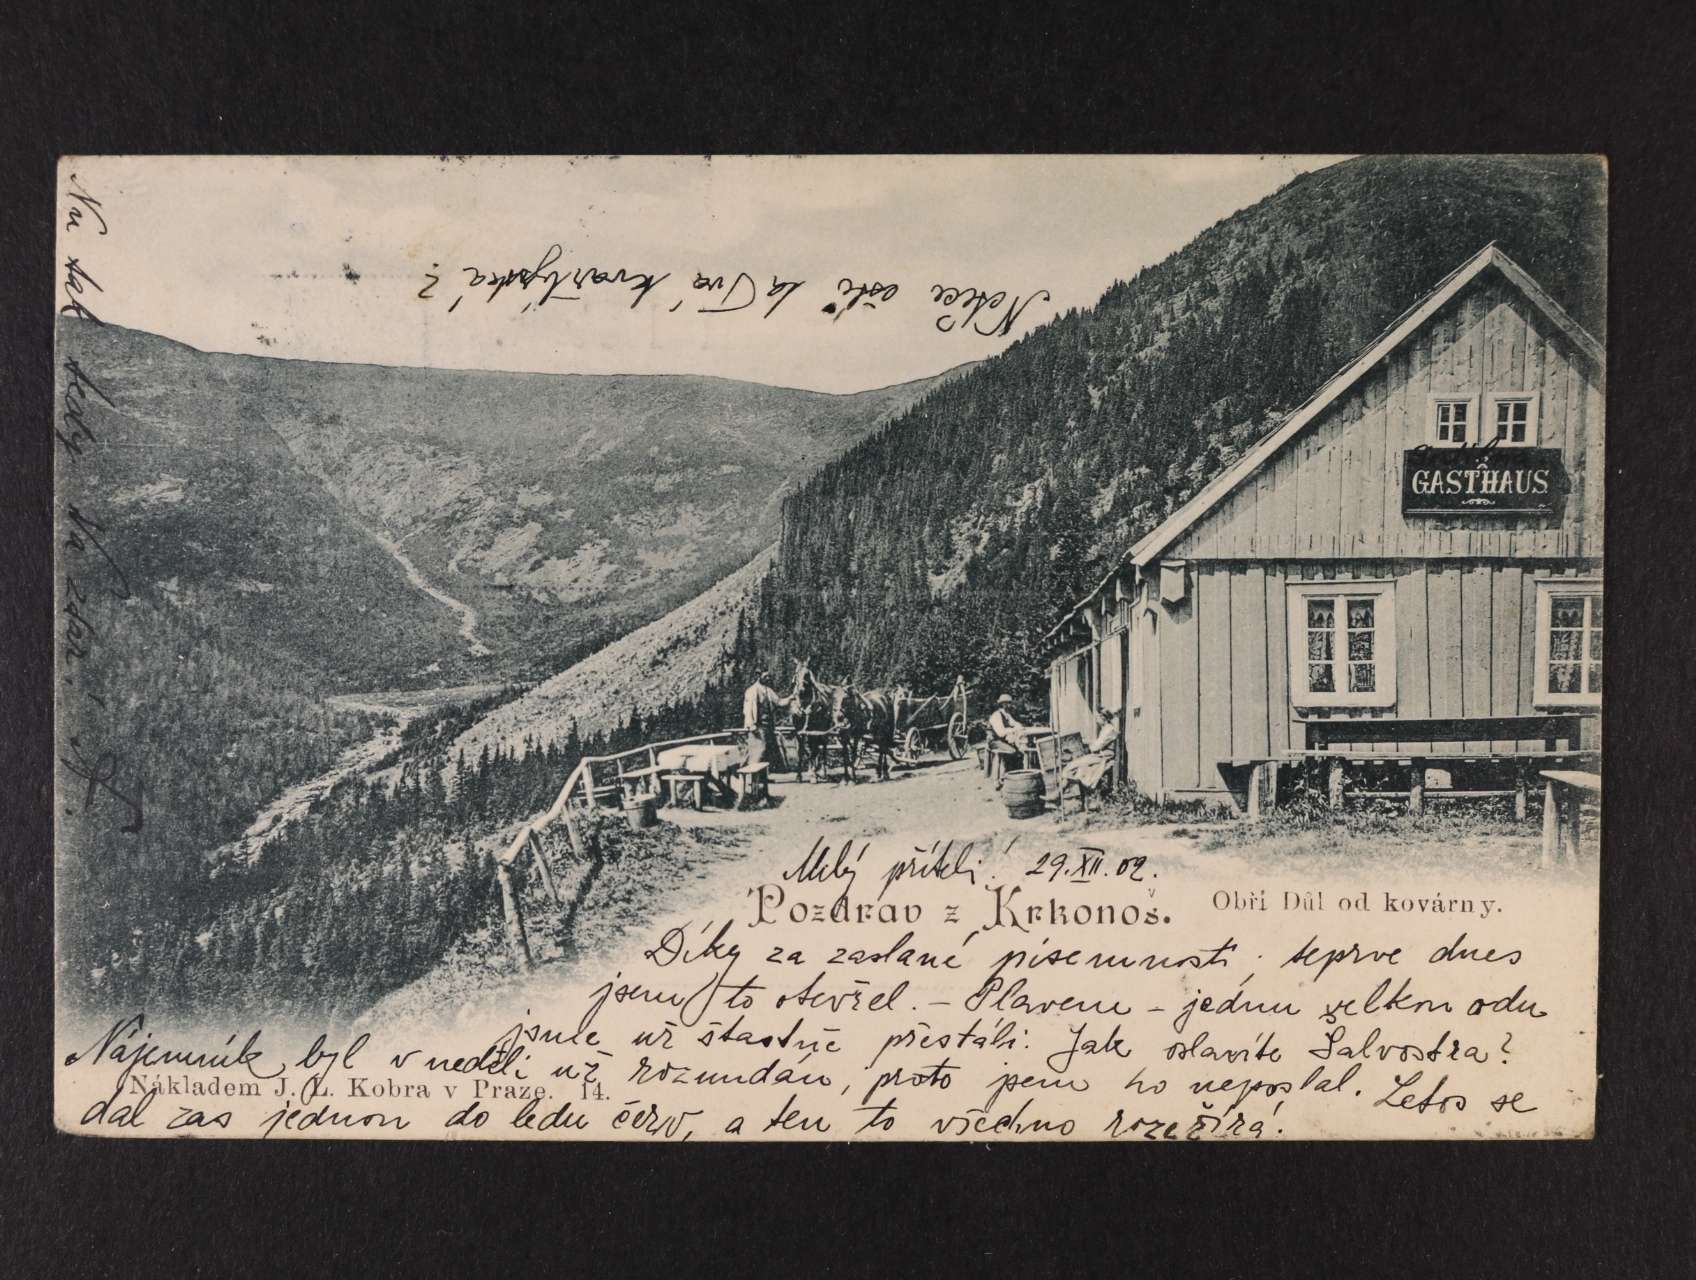 Nu tak tedy Na zdar!
GASTHAUS
Milý příteli! 29.XII.02.
Pozdrav z Krkonoš.
Obří Důl od kovárny.
Díky za zaslané písemnosti; teprve dnes
jsem to otevřel. – Plavem – jednu velkou
jsme už štastně přestáli. Jak oslavíte Salvostra?
Nájemník byl v neděli už rozundán, proto jsem ho neposlal. Letos se
Nákladem J. L. Kobra v Praze. 14.
dal zas jednou do ledu červ, a ten to všechno rozežírá!